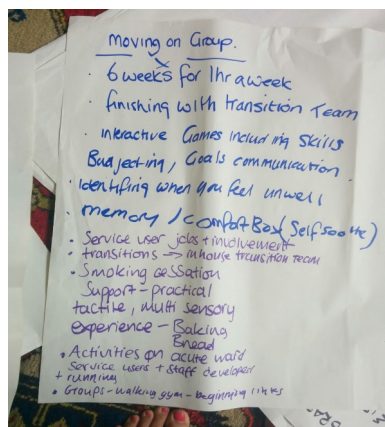 Moving on Group.
· 6 weeks for 1hr a week
· finishing with transition Team
· interactive Games including skills
Budjecting, Goals communication.
· Identifing when you feel unwell
· memory / comfort Box (self soothe)
· Service user jobs + involvement
· transitions → inhouse transition team
· Smoking cessation
Support - practical
tactile, multi sensory
experience - Baking
Bread
· Activities on acute ward
Service users + staff developed
+ running
· Groups - walking gym - beginning